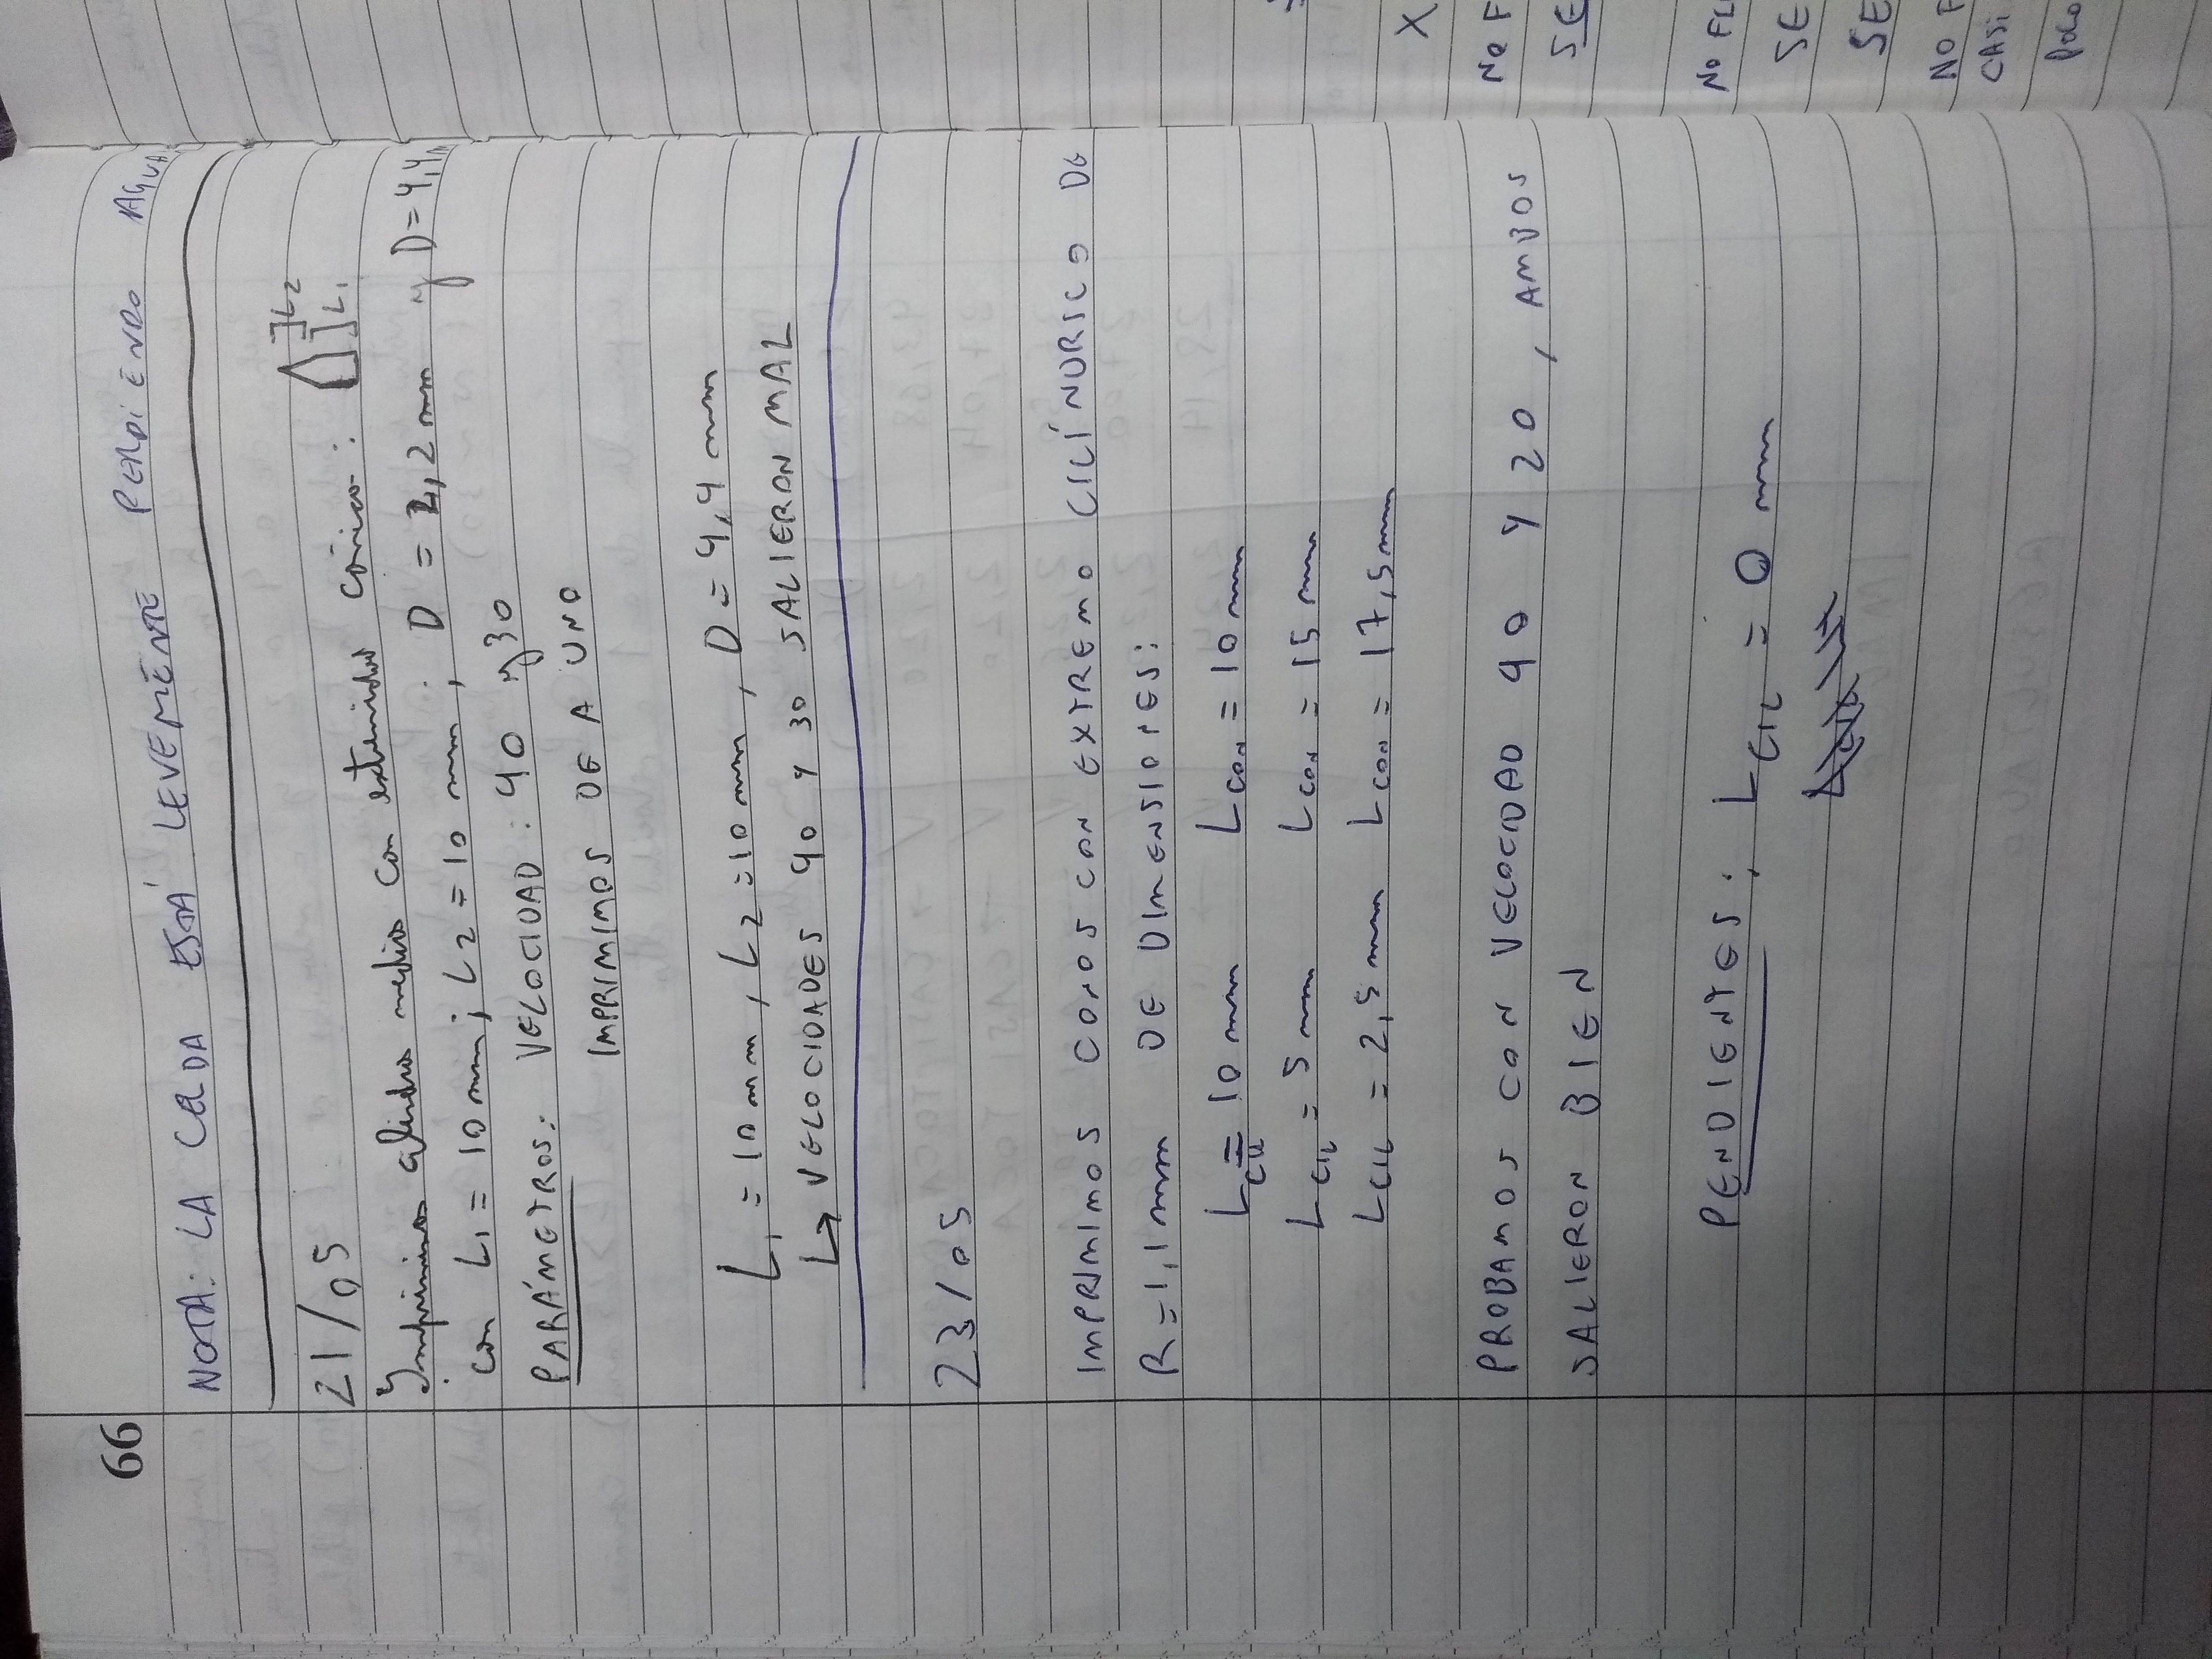 66
NOTA: LA CELDA ESTÁ LEVEMENTE PERDIENDO AGUA.
21/05
Imprimimos cilindros medios con extremidad cónica: L2
L1
con L1 = 10 mm; L2 = 10 mm; D = 2,2 mm y D = 4,4
PARÁMETROS: VELOCIDAD: 40 y 30
IMPRIMIMOS DE A UNO
L1 = 10 mm, L2 = 10 mm, D = 4,4 mm
↳ VELOCIDADES 40 Y 30 SALIERON MAL
23/05
IMPRIMIMOS CONOS CON EXTREMO CILÍNDRICO DE
R = 1,1 mm DE DIMENSIONES:
LCIL = 10 mm LCON = 10 mm
LCIL = 5 mm LCON = 15 mm
LCIL = 2,5 mm LCON = 17,5 mm
PROBAMOS CON VELOCIDAD 40 Y 20, AMBOS
SALIERON BIEN
PENDIENTES: LCIL = 0 mm
X
NO F
SE
NO FL
SE
SE
NO F
CASI
POCO